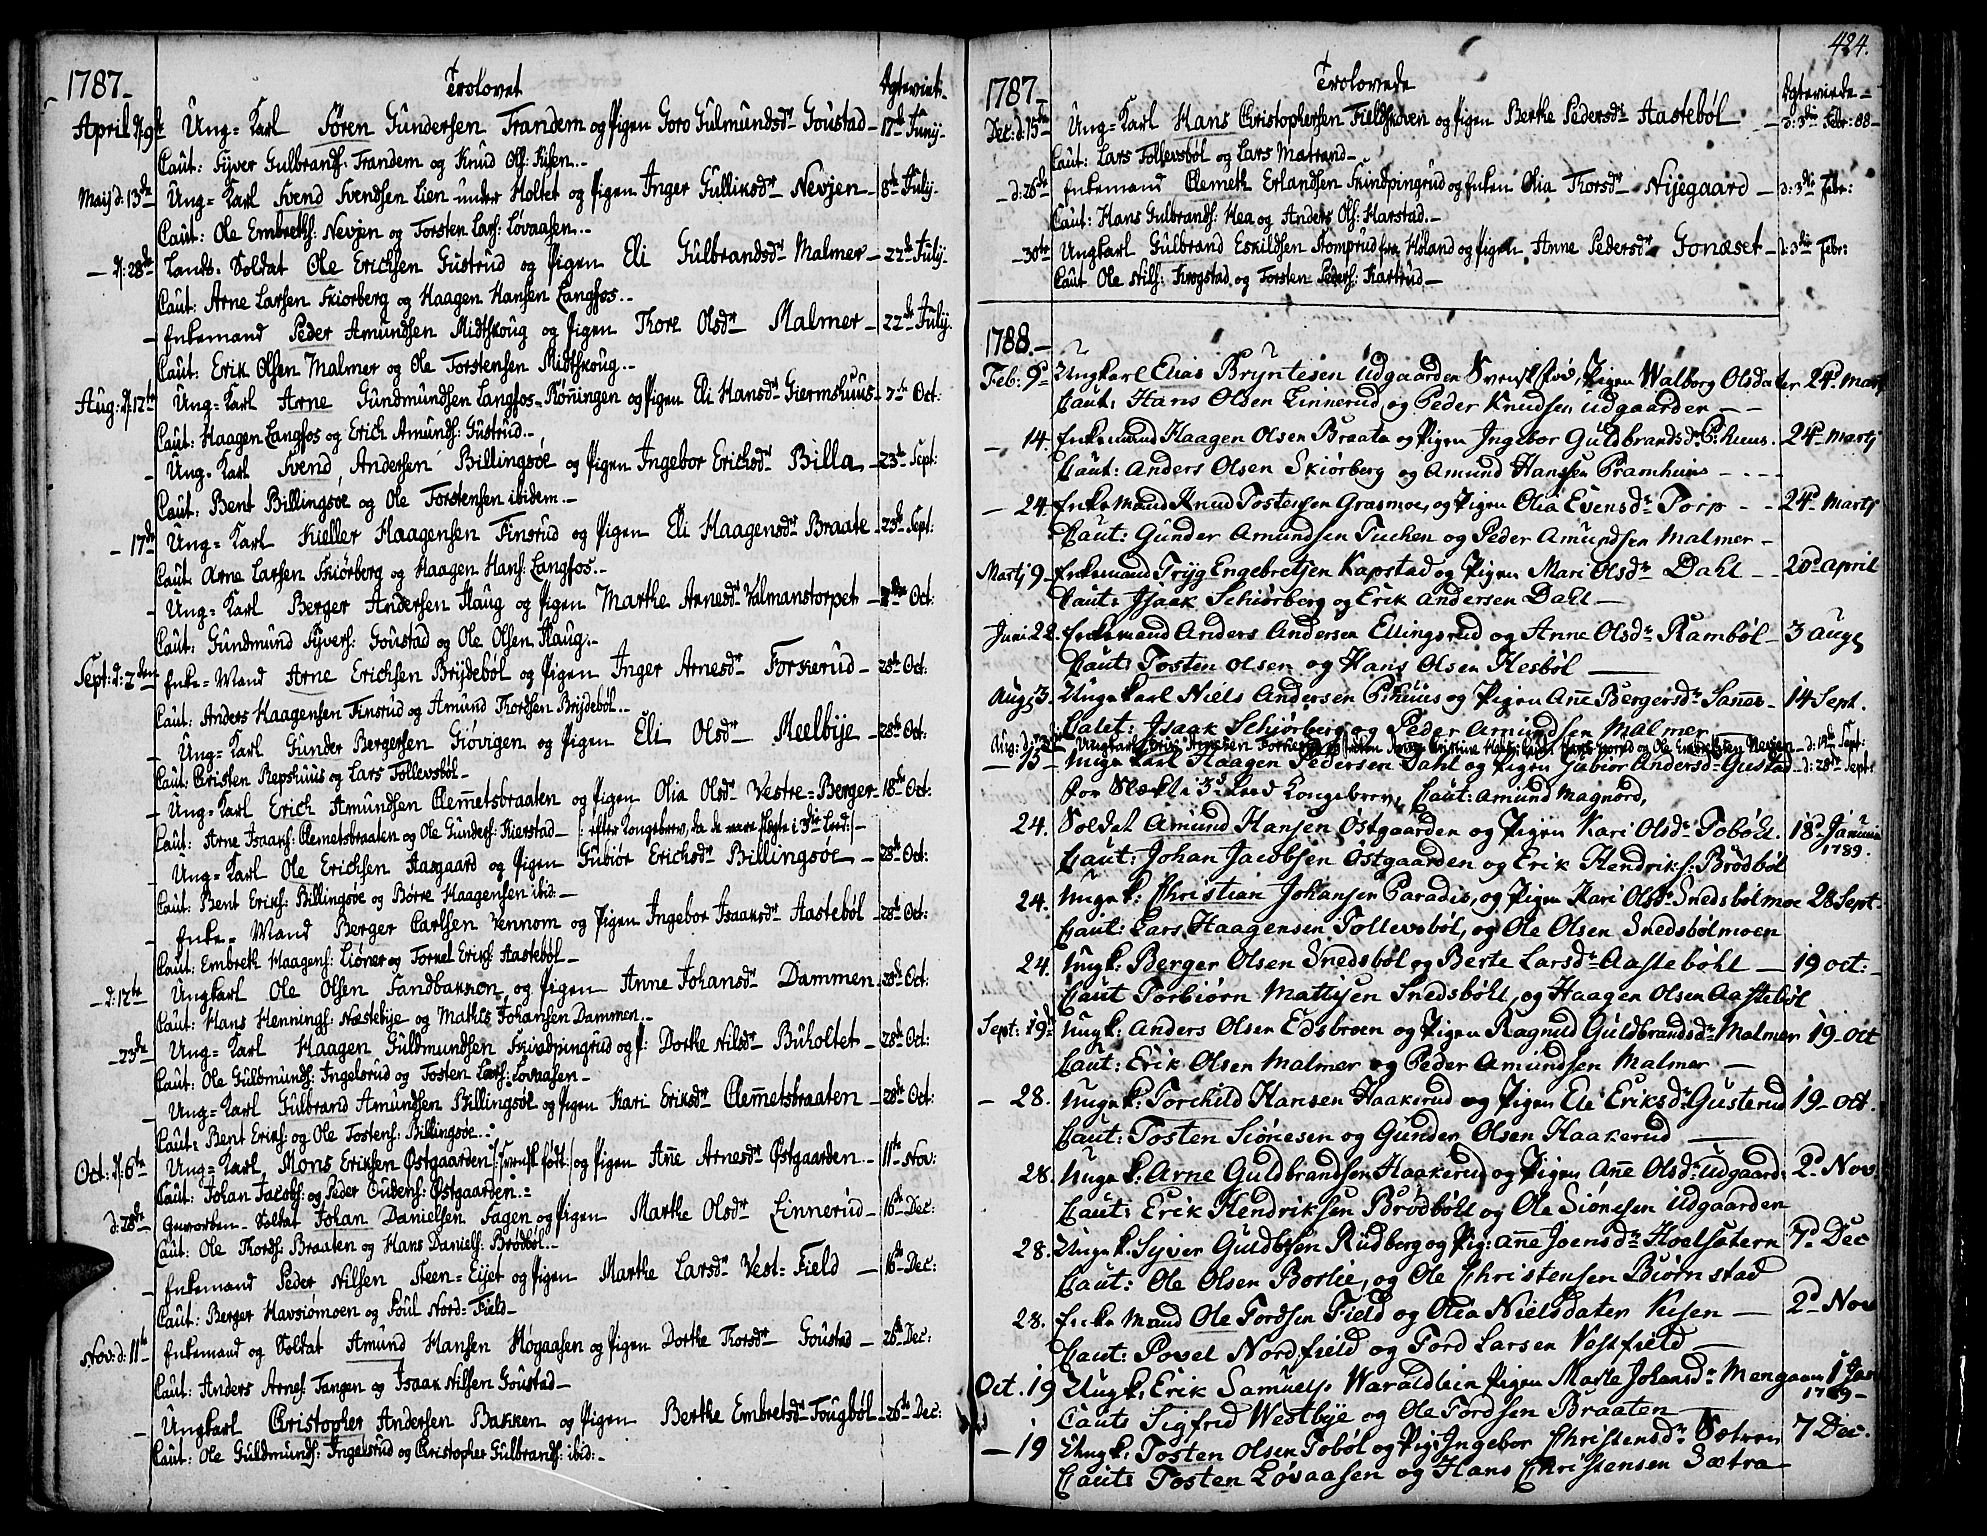 1787 Trolovet Ægteviet
April d: 9de Ung-Karl Sören Gundersen Trandem og Pigen Goro Gulmundsdr Goustad 17de Junij
Caut: Syver Gulbrands: Trandem og Knud Ols: Kisen
Maij d: 13de Ung-Karl Svend Svendsen Lien under Holtet og Pigen Inger Gulliksdr Nevjen 8de Julij
Caut: Ole Embreths: Nevjen og Torsten Lars: Løvaasen
d: 28de Lands-Soldat Ole Erichsen Gustrud og Pigen Eli Gulbrandsdr Malmer 22de Julij
Caut: Arne Larsen Skiorberg og Haagen Hansen Langfos
Enkemand Peder Amundsen Midtskoug og Pigen Thore Olsdr Malmer 22de Julij
Caut: Erik Olsen Malmer og Ole Torstensen Midtskoug
Aug: d: 12te Ung-Karl Arne Gundmundsen Langfos-Köningen og Pigen Eli Hansdr Giermshuus 7de Oct:
Caut: Haagen Langfos og Erich Amunds: Gustrud
Ung-Karl Svend Andersen Billingsøe og Pigen Ingebor Erichsdr Billa 23de Sept:
Caut: Bent Billingsøe og Ole Torstensen ibidem
17de Ung-Karl Kieller Haagensen Finsrud og Pigen Eli Haagensdr Braate 23de Sept:
Caut: Arne Larsen Skiørberg og Haagen Hans: Langfos
Ung-Karl Berger Andersen Haug og Pigen Marthe Arnesdr Valmanstorpet Oct:
Caut: Gundmund Syvers: Goustad og Ole Olsen Haug
Sept: d: 2den Enke-Mand Arne Erichsen Brijdebøl og Pigen Inger Arnesdr Forkerud 28de Oct:
Caut: Anders Haagensen Finsrud og Amund Thordsen Brijdebøl
Ung-Karl Gunder Bergersen Giøvigen og Pigen Eli Olsdr Meelbije 28de Oct:
Caut: Christen Repshuus og Lars Tollevsbøl
Ung-Karl Erich Amundsen Clemetsbraaten og Pigen Olia Olsdr Vestre-Berger 18de Oct:
Caut: Arne Isaaks: Clemetsbraaten og Ole Gunders: Kierstad /: efter Kongebrev, da de vare slægte i 3die Leed :/
Ung-Karl Ole Erichsen Aasgaard og Pigen Gubiør Erichsdr Billingsøe 28de Oct:
Caut: Bent Eriks: Billingsøe og Börre Haagensen ibid:
Enke-Mand Berger Carlsen Vennom og Pigen Ingebor Isaaksdr Aastebøl 28de Oct:
Caut: Embreth Haagens: Liöner og Tornel Eriks: Aastebøl
d: 12te Ungkarl Ole Olsen Sandbakken og Pigen Anne Johansdr Dammen 28de Oct:
Caut: Hans Hennings: Næstebije og Mathis Johansen Dammen
23de Ung-Karl Haagen Guldmundsen Skindpingrud og P: Dorthe Nilsdr Buholtet 28de Oct:
Caut: Ole Guldmunds: Ingelsrud og Tosten Lars: Lovaasen
Ung-Karl Gulbrand Amundsen Billingsøe og Pigen Kari Eriksdr Clemetsbraaten 28de Oct:
Caut: Bent Eriks: og Ole Tostens: Billingsøe
Oct: d: 6te Ung-Karl Mons Eriksen Østgaarden /: svensk født :/ og Pigen Ane Arnesdr Østgaarden 11te Nov:
Caut: Johan Jacobs: og Peder Gudens: Østgaarden
d: 28de Gevorben-Soldat Johan Danielsen Fagen og Pigen Marthe Olsdr Linnerud 16de Dec:
Caut: Ole Thords: Braaten og Hans Daniels: Brødbøl
Enkemand Peder Nilsen Steen-Eijet og Pigen Marthe Larsdr Vest-Field 16de Dec:
Caut: Berger Havsiømoen og Poul Nord-Field
Nov: d: 11te Enkemand og Soldat Amund Hansen Høgaasen og Pigen Dorthe Thorsdr Goustad 26de Dec:
Caut: Anders Arnes: Tangen og Isaak Nilsen Goustad
Ungkarl Christopher Andersen Bakken og Pigen Berthe Embretsdr Tougbøl 26de Dec:
Caut: Ole Guldmunds: Ingelsrud og Christopher Gulbrands: ibid:
424.
1787 Trolovede Ægteviede
Dec: d: 15de Ung-Karl Hans Christophersen Fieldskoven og Pigen Berthe Pedersdr Aastebøl d: 3die Febr: 88
Caut: Lars Tollevsbøl og Lars Matrand
d: 26de Enkemand Clemeth Erlandsen Skindpingrud og Enken Olia Thorsdr Nijegaard d: 3die Febr:
Caut: Hans Gulbrands: Hea og Anders Ols: Harstad
30te Ungkarl Gulbrand Eskildsen Stomprud fra Høland og Pigen Anne Pedersdr Gonæset d: 3die Febr:
Caut Ole Nils: Krogstad og Torsten Peders: Kartrud
1788.
Feb: 9d Ungkarl Elias Bryntesen Udgaarden Svensk fød, Pigen Walborg Olsdater 24d Martj
Caut: Hans Olsen Linnerud og Peder Knudsen Udgaarden
14. Enkemand Haagen Olsen Braata og Pigen Ingebor Guldbrandsdr P:huus. 24d Martj
Caut: Anders Olsen Skiörberg og Amund Hansen Pramhuus
24. Enkemand Knud Tostensen Grasmoe, og Pigen Olia Evensdr Torp 24d Martj
Caut: Gunder Amundsen Tuchen og Peder Amundsen Malmer
Martj 9 Enkemand Tryg Engebretsen Kapstad og Pigen Mari Olsdr Dahl 20d April
Caut: Isaak Schiörberg og Erik Andersen Dahl
Juni 22. Enkemand Anders Andersen Ellingsrud og Anne Olsdr Rambøl 3 aug
Caut: Tosten Olsen og Hans Olsen Hesbøl
Aug: 3. Ungekarl Niels Andersen P:huus og Pigen Ane Bergersdr Sanne 14 Sept.
Catet: Isaak Schjørberg og Peder Amundsen Malmer
Aug: d: Ungkarl og Ole Embrethsen Nevjen d: 14de Sept:
15 Ungekarl Haagen Pedersen Dahl og Pigen Gubior Andersdr Gustad d: 28de Sept:
for Slækt i 3d Leed Kongebrev, Caut: Amund Magnord,
24. Soldat Amund Hansen Östgaarden og Pigen Kari Olsdr Tobøhl. 18d Januari 1789.
Caut: Johan Jacobsen Östgaarden og Erik Hendriks: Brödbøl
24. Ungk: Christian Johansen Paradis, og Pigen Kari Olsdr Snedsbølmoe 28 Sept.
Caut: Lars Haagensen Tollevsbøl, og Ole Olsen Snedsbølmoen
24. Ungk: Berger Olsen Snedsbøl og Berte Larsdr Aastebøhl 19 oct:
Caut Torbiørn Mattisen Snedsbøhl, og Haagen Olsen Aastebøl
Sept: 19d Ungk: Anders Olsen Edsbroen og Pigen Ragnild Guldbrandsdr Malmer 19 oct
Caut: Erik Olsen Malmer og Peder Amundsen Malmer
28. Ungek: Torchild Hansen Haakerud og Pigen Ele Eriksdr Gusterud 19 oct.
Caut: Tosten Siönesen og Gunder Olsen Haakerud
28. Ungk: Arne Guldbrandsen Haakerud og Pigen Ane Olsdr Udgaard: 2d Nov
Caut: Erik Hendriksen Brødbøhl og Ole Siönesen Udgaarden
28. Ungk. Syver Guldbsen Rudberg og Pig: Ane Joensdr Hoelsætern 7d Dec
Caut: Ole Olsen Borlie, og Ole Christensen Biørnstad
28. Enkemand Ole Tordsen Field og Olia Nielsdaten Kisen 2d Nov
Caut: Povel Nordfield og Tord Larsen Vestfield
Oct. 19 Ungk: Erik Samuels: Waraldlein Pigen Marte Johansdr Mengaan 1 Jan 1789
Caut: Sigfrid Westbye og Ole Tordsen Braaten
19 Ungk: Tosten Olsen Tobøl og Pig: Ingebor Christensdr Sætren 7 Dec.
Caut: Tosten Løvaasen og Hans Christensen Sætra